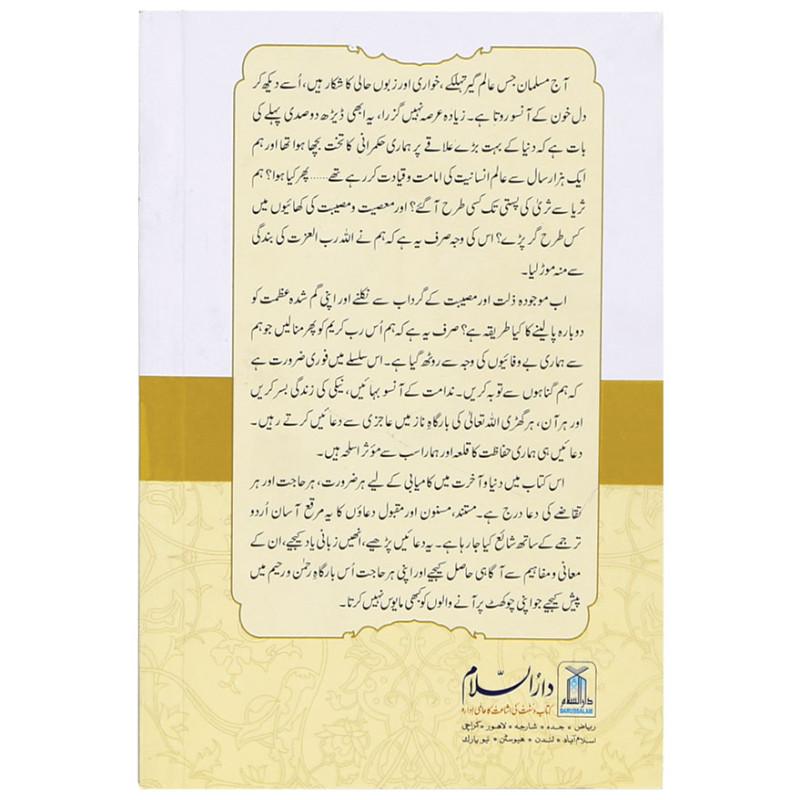 آج مسلمان جس عالم گیر تہلکے، خواری اور زبوں حالی کا شکار ہیں، اُسے دیکھ کر
دل خون کے آنسو روتا ہے۔ زیادہ عرصہ نہیں گزرا، یہ ابھی ڈیڑھ دو صدی پہلے کی
بات ہے کہ دنیا کے بہت بڑے علاقے پر ہماری حکمرانی کا تخت بچھا ہوا تھا اور ہم
ایک ہزار سال سے عالم انسانیت کی امامت و قیادت کر رہے تھے...... پھر کیا ہوا؟ ہم
ثریا سے ثریٰ کی پستی تک کسی طرح آ گئے؟ اور معصیت و مصیبت کی کھائیوں میں
کس طرح گر پڑے؟ اس کی وجہ صرف یہ ہے کہ ہم نے اللہ رب العزت کی بندگی
سے منہ موڑ لیا۔
اب موجودہ ذلت اور مصیبت کے گرداب سے نکلنے اور اپنی گم شدہ عظمت کو
دوبارہ پا لینے کا کیا طریقہ ہے؟ صرف یہ ہے کہ ہم اُس رب کریم کو پھر منا لیں جو ہم
سے ہماری بے وفائیوں کی وجہ سے روٹھ گیا ہے۔ اس سلسلے میں فوری ضرورت ہے
کہ ہم گناہوں سے توبہ کریں۔ ندامت کے آنسو بہائیں، نیکی کی زندگی بسر کریں
اور ہر آن، ہر گھڑی اللہ تعالیٰ کی بارگاہِ ناز میں عاجزی سے دعائیں کرتے رہیں۔
دعائیں ہی ہماری حفاظت کا قلعہ اور ہمارا سب سے مؤثر اسلحہ ہیں۔
اس کتاب میں دنیا و آخرت میں کامیابی کے لیے ہر ضرورت، ہر حاجت اور ہر
تقاضے کی دعا درج ہے۔ مستند، مسنون اور مقبول دعاؤں کا یہ مرقع آسان اُردو
ترجمے کے ساتھ شائع کیا جا رہا ہے۔ یہ دعائیں پڑھیے، انھیں زبانی یاد کیجیے، ان کے
معانی و مفاہیم سے آگاہی حاصل کیجیے اور اپنی ہر حاجت اُس بارگاہِ رحمٰن و رحیم میں
پیش کیجیے جو اپنی چوکھٹ پر آنے والوں کو کبھی مایوس نہیں کرتا۔
دارالسلام
کتاب و سنت کی اشاعت کا عالمی ادارہ
ریاض • جدہ • شارجہ • لاہور • کراچی
اسلام آباد • لندن • ہیوسٹن • نیو یارک
دارالسلام
DARUSSALAM